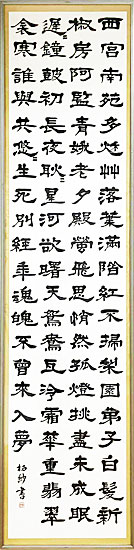 西宮南苑多秋艸落葉滿階紅不掃梨園弟子白髮新
椒房阿監青娥老夕殿螢飛思悄然孤燈挑盡未成眠
遲〻鐘鼓初長夜耿〻星河欲曙天鴛鴦瓦冷霜華重翡翠
衾寒誰與共悠〻生死別經年魂魄不曾來入夢
書